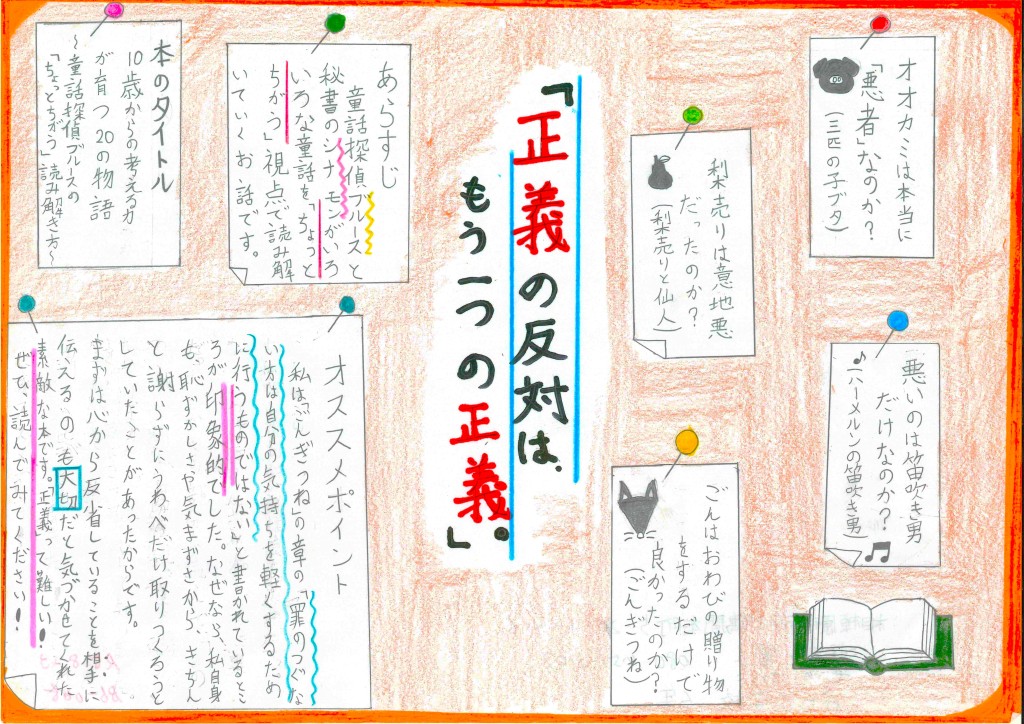 オオカミは本当に
「悪者」なのか？
（三匹の子ブタ）
梨売りは意地悪
だったのか？
（梨売りと仙人）
悪いのは笛吹き男
だけなのか？
（ハーメルンの笛吹き男）
ごんはおわびの贈り物
をするだけで
良かったのか？
（ごんぎつね）
「正義の反対は、
もう一つの正義」。
あらすじ
童話探偵ブルースと
秘書のシナモンがいろ
いろな童話を、「ちょっと
ちがう」視点で読み解
いていくお話です。
本のタイトル
10歳からの考える力
が育つ20の物語
～童話探偵ブルースの
「ちょっとちがう」読み解き方～
オススメポイント
私は「ごんぎつね」の章の「罪のつぐな
い方は自分の気持ちを軽くするため
に行うものではない」と書かれているとこ
ろが印象的でした。なぜなら、私自身
も、恥ずかしさや気まずさから、きちん
と謝らずにうわべだけ取りつくろうと
していたことがあったからです。
まずは心から反省していることを相手に
伝えるのも大切だと気づかせてくれた
素敵な本です。「正義」って難しい！
ぜひ、読んでみてください！